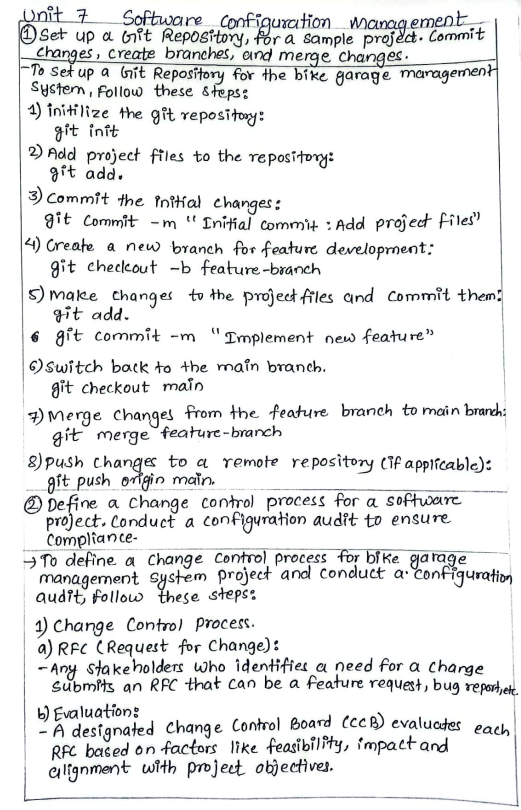 Unit 7 Software Configuration Management
① Set up a Gnit Repository, for a sample project. Commit
changes, create branches, and merge changes.
-To set up a Gnit Repository for the bike garage management
System, Follow these steps:
1) initilize the git repository:
git init
2) Add project files to the repository:
git add.
3) Commit the initial changes:
git commit -m "Initial commit : Add project files"
4) Create a new branch for feature development:
git checkout -b feature-branch
5) Make changes to the project files and commit them:
git add.
6 git commit -m "Implement new feature"
6) Switch back to the main branch.
git checkout main
7) Merge changes from the feature branch to main branch:
git merge feature-branch
8) push changes to a remote repository (if applicable):
git push origin main.
② Define a change control process for a software
project. Conduct a configuration audit to ensure
Compliance-
→ To define a change control process for bike garage
management system project and conduct a configuration
audit, follow these steps:
1) Change Control Process.
a) RFC (Request for Change):
- Any stakeholders who identifies a need for a change
submits an RFC that can be a feature request, bug report, etc.
b) Evaluation:
- A designated Change Control Board (CCB) evaluates each
RFC based on factors like feasibility, impact and
alignment with project objectives.